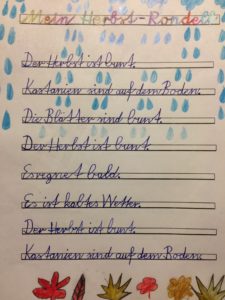 Mein Herbst-Rondell
Der Herbst ist bunt.
Kastanien sind auf dem Boden.
Die Blätter sind bunt.
Der Herbst ist bunt.
Es regnet bald.
Es ist kaltes Wetter.
Der Herbst ist bunt.
Kastanien sind auf dem Boden.